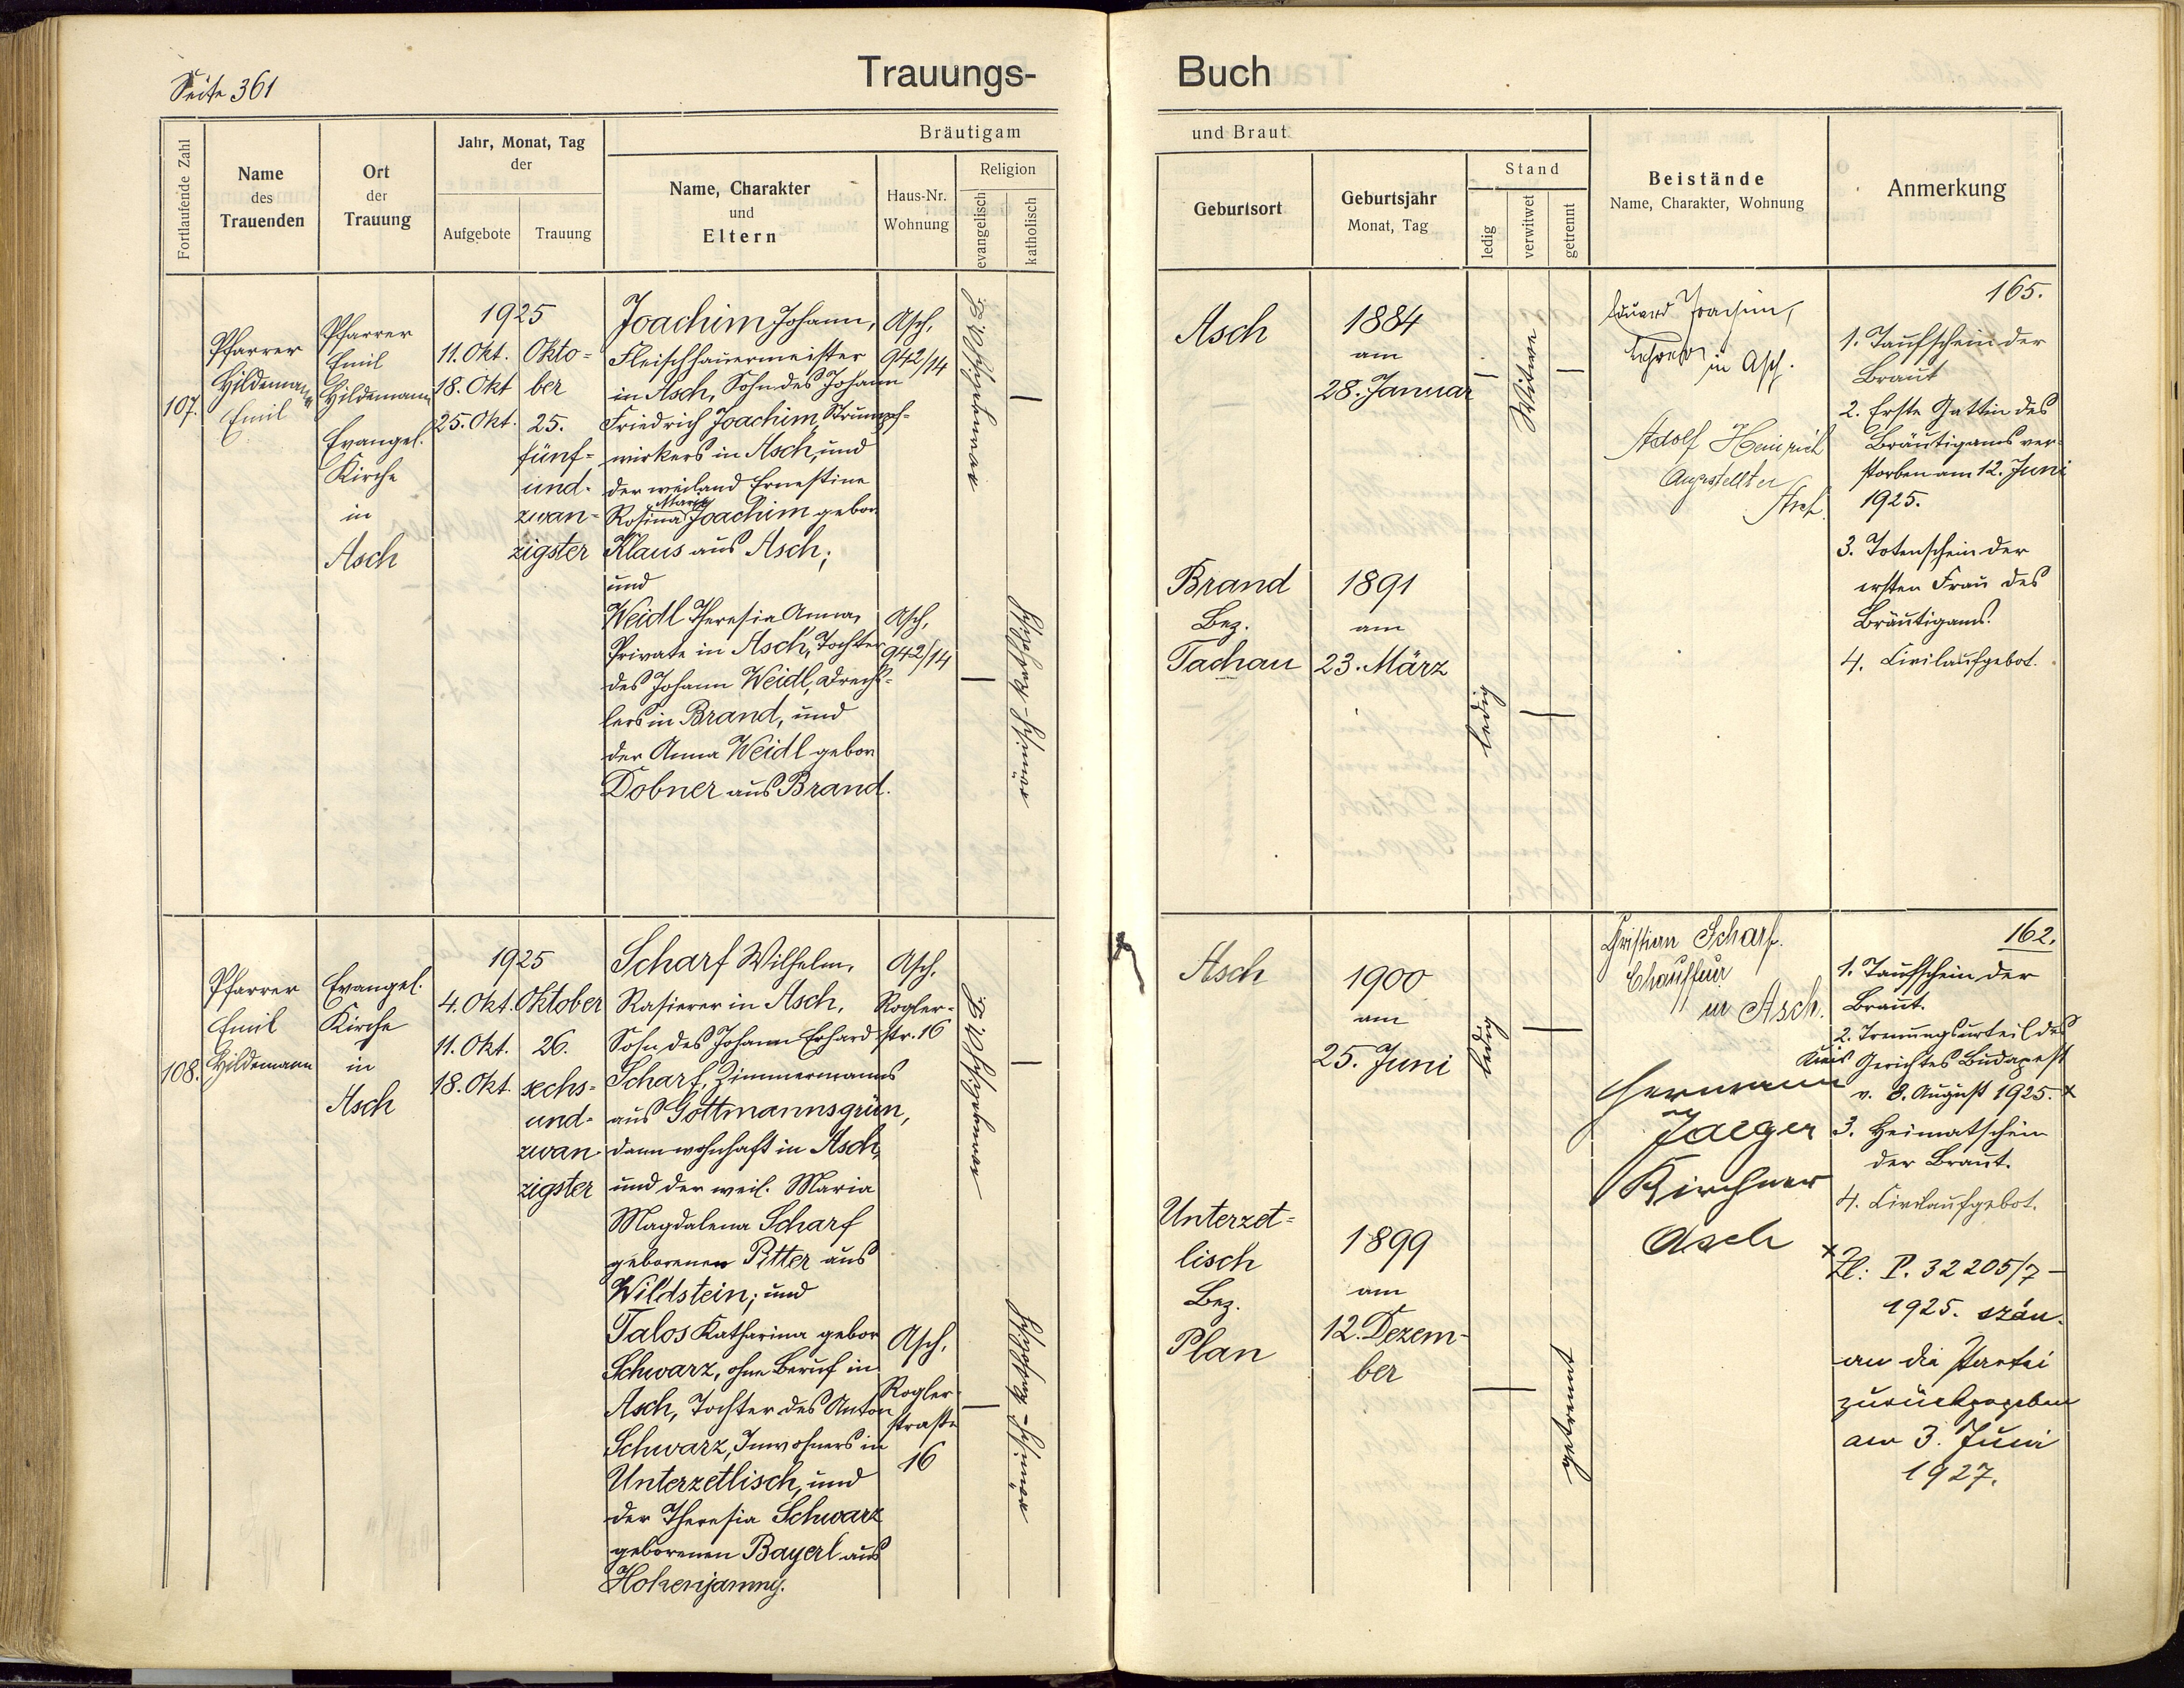 Seite 361
Trauungs-
Buch
Fortlaufende Zahl
Name
des
Trauenden
Ort
der
Trauung
Jahr, Monat, Tag
der
Aufgebote
Trauung
Bräutigam
Name, Charakter
und
Eltern
Haus-Nr.
Wohnung
Religion
evangelisch
katholisch
und Braut
Geburtsort
Geburtsjahr
Monat, Tag
Stand
ledig
verwitwet
getrennt
Beistände
Name, Charakter, Wohnung
Anmerkung
107.
Pfarrer
Hildemann
Emil
Pfarrer
Emil
Hildemann
Evangel.
Kirche
in
Asch
1925
11. Okt.
18. Okt
25. Okt.
Okto=
ber
25.
fünf=
und=
zwan=
zigster
Joachim Johann,
Fleischhauermeister
in Asch, Sohn des Johann
Friedrich Joachim, Strumpf=
wirkers in Asch, und
der weiland Ernestine
Maria
Rosina Joachim gebor.
Klaus aus Asch;
und
Weidl Theresia Anna,
Private in Asch, Tochter
des Johann Weidl, Drechs=
lers in Brand, und
der Anna Weidl gebor.
Dobner aus Brand.
Asch,
942/14
Asch,
942/14
römisch-katholisch
Asch
1884
am
28. Januar
Witwer
Brand
Bez.
Tachau
1891
am
23. März
ledig
Eduard Joachim,
Lehrer in Asch.
Adolf Heinrich
Angestellter
Asch.
165.
1. Taufschein der
Braut
2. Erste Gattin des
Bräutigams ver-
storben am 12. Juni
1925.
3. Totenschein der
ersten Frau des
Bräutigams.
4. Civilaufgebot.
108.
Pfarrer
Emil
Hildemann
Evangel.
Kirche
in
Asch
1925
4. Okt.
11. Okt.
18. Okt.
Oktober
26.
sechs=
und=
zwan-
zigster
Scharf Wilhelm,
Rasierer in Asch,
Sohn des Johann Erhard
Scharf, Zimmermanns
aus Gottmannsgrün,
dann wohnhaft in Asch,
und der weil. Maria
Magdalena Scharf
geborenen Ritter aus
Wildstein; und
Talos Katharina gebor.
Schwarz, ohne Beruf in
Asch, Tochter des Anton
Schwarz, Inwohners in
Unterzetlisch, und
der Theresia Schwarz
geborenen Bayerl aus
Hohenjamny.
Asch,
Rogler=
str. 16
Asch,
Rogler-
straße
16
römisch-katholisch
Asch
1900
am
25. Juni
ledig
Unterzet=
lisch
Bez.
Plan
1899
am
12. Dezem-
ber
getrennt
Christian Scharf.
Chauffeur
in Asch.
Hermann
Jaeger
Kirchner
Asch
162.
1. Taufschein der
Braut.
2. Trennungsurteil des
Kreis Gerichtes Budapest
v. 8. August 1925. x
3. Heimatschein
der Braut.
4. Civilaufgebot.
x Zl: P. 32205/7-
1925. szám.
an die Partei
zurückgegeben
am 3. Juni
1927.